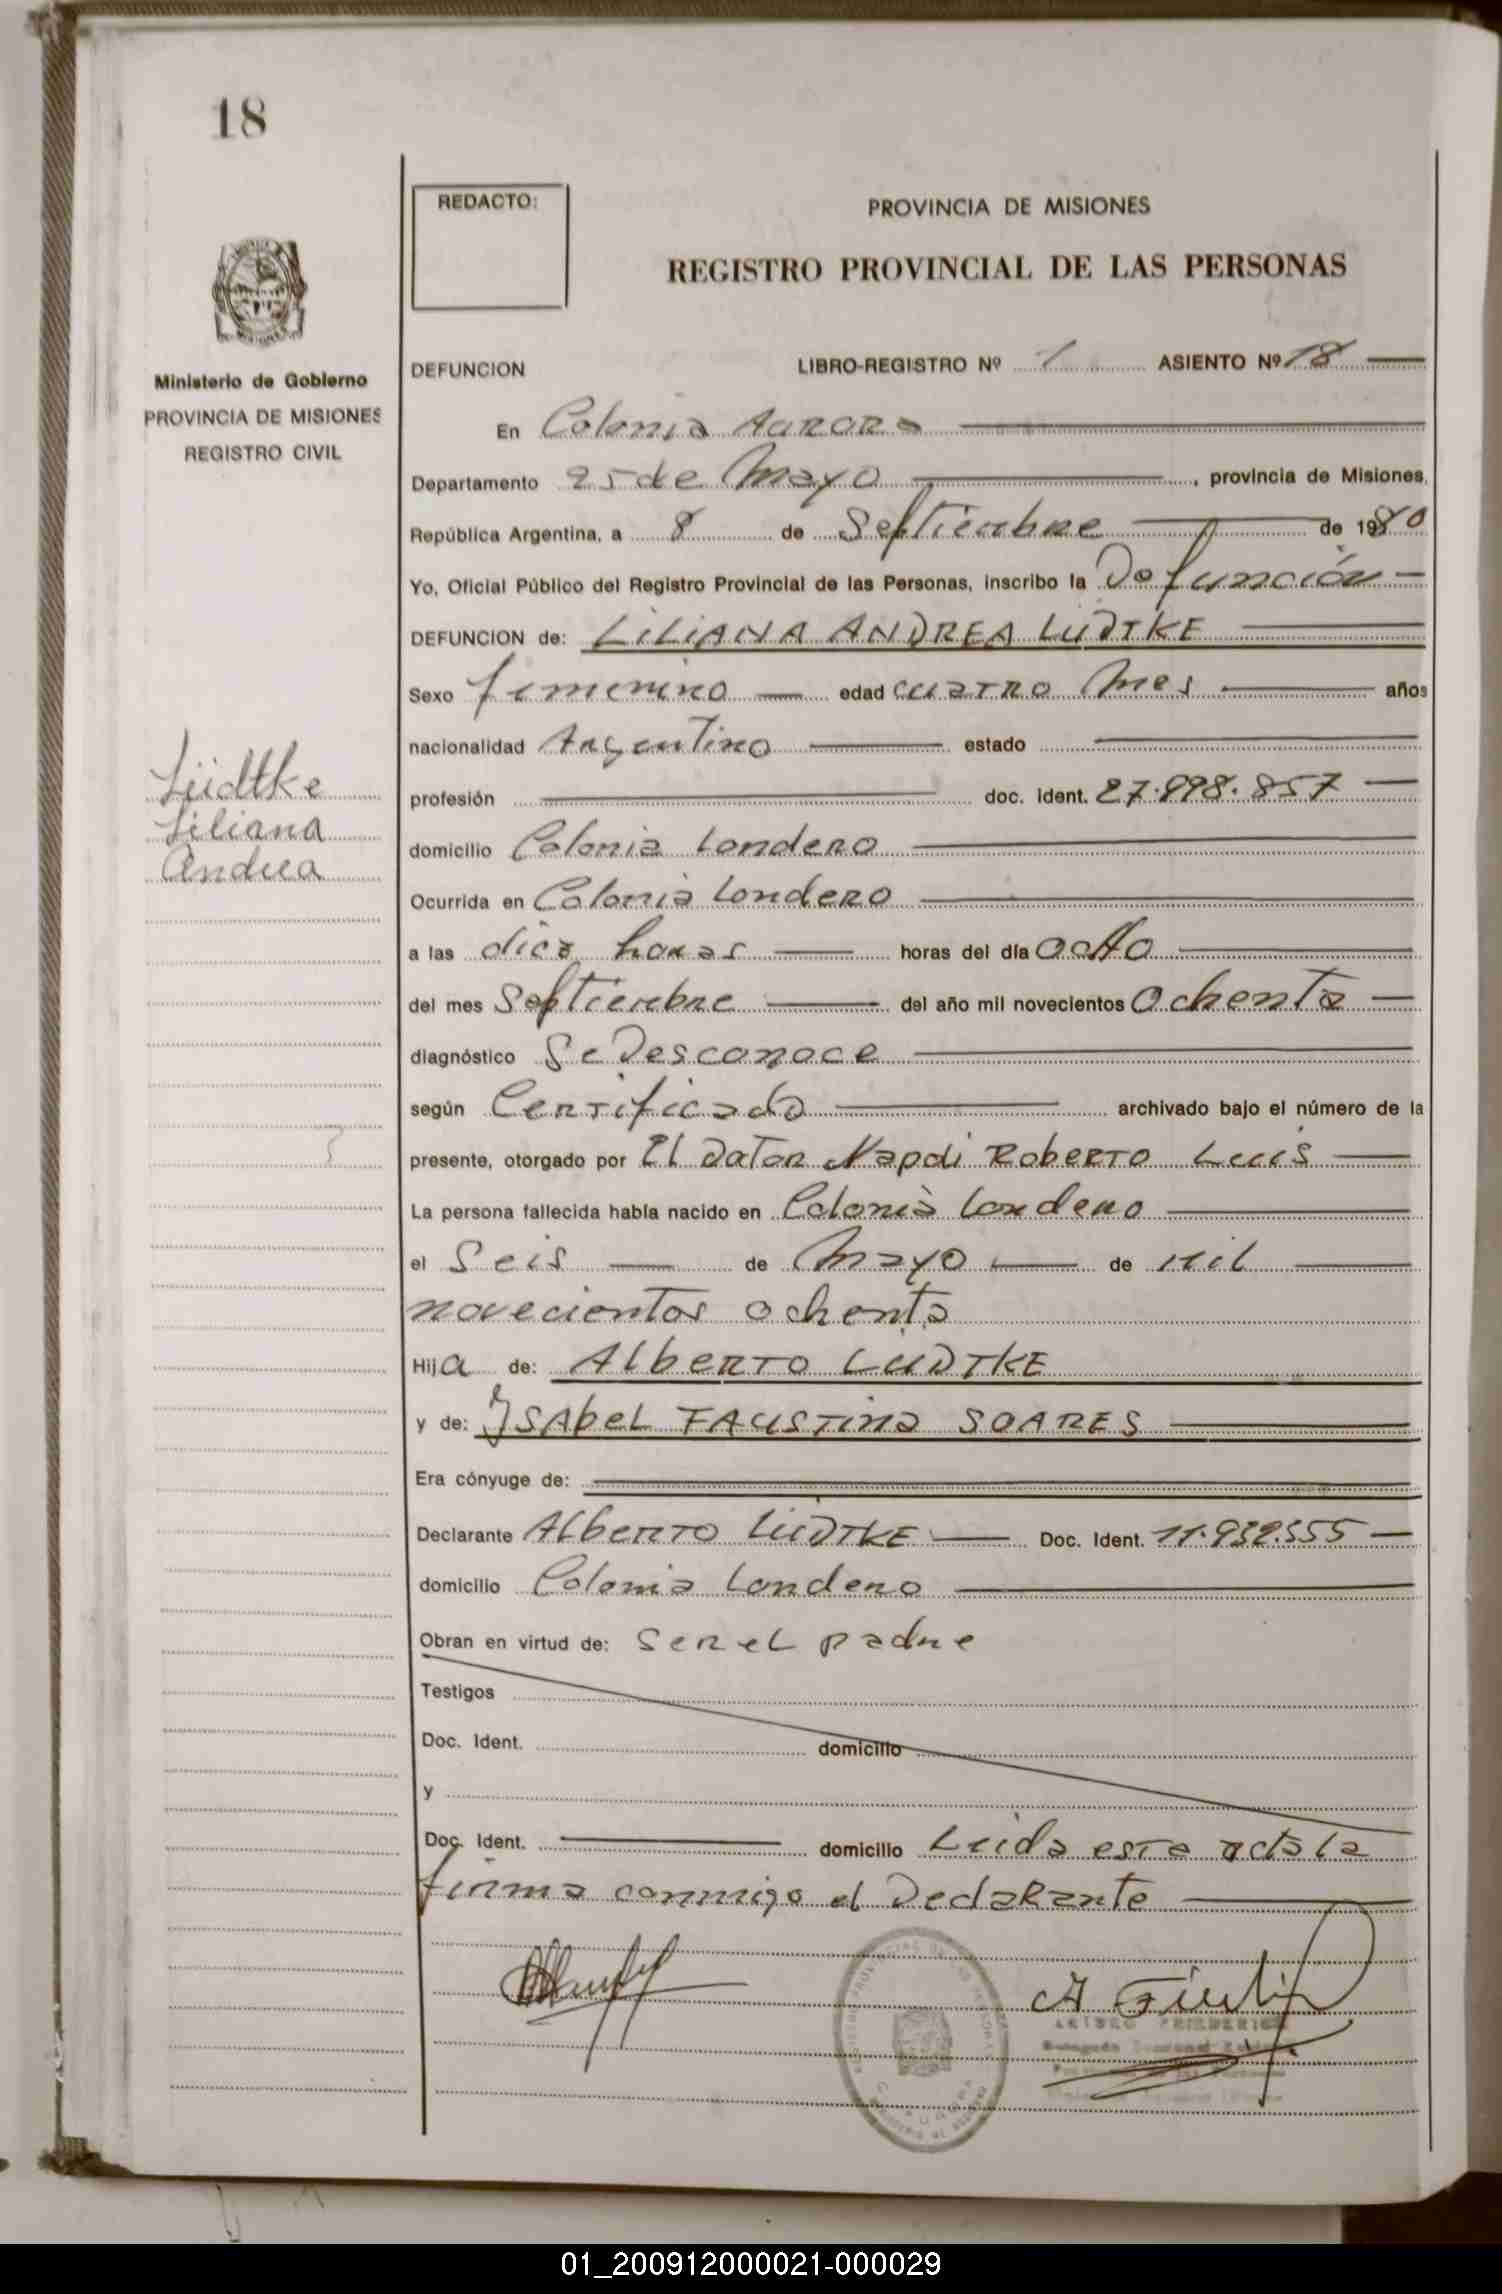 18
REDACTO:
PROVINCIA DE MISIONES
REGISTRO PROVINCIAL DE LAS PERSONAS
Ministerio de Gobierno
PROVINCIA DE MISIONES
REGISTRO CIVIL
DEFUNCION LIBRO-REGISTRO Nº 1 ASIENTO Nº 18
En Colonia Aurora
Departamento 25 de Mayo, provincia de Misiones,
República Argentina, a 8 de Septiembre de 1980
Yo, Oficial Público del Registro Provincial de las Personas, inscribo la Defunción
DEFUNCION de: LILIANA ANDREA LÜDTKE
Sexo femenino edad cuatro Mes años
nacionalidad Argentino estado
Lüdtke
Liliana
Andrea
profesión doc. ident. 27.998.857
domicilio Colonia Londero
Ocurrida en Colonia Londero
a las diez horas horas del día ocho
del mes Septiembre del año mil novecientos Ochenta
diagnóstico Se Desconoce
según Certificado archivado bajo el número de la
presente, otorgado por El Dator Napdi Roberto Luis
La persona fallecida había nacido en Colonia Londero
el Seis de Mayo de mil
novecientos ochenta
Hija de: Alberto LUDTKE
y de: Isabel FAUSTINA SOARES
Era cónyuge de:
Declarante Alberto LÜDTKE Doc. Ident. 11.932.555
domicilio Colonia Londero
Obran en virtud de: ser el padre
Testigos
Doc. Ident. domicilio
y
Doc. Ident. domicilio Leida esta acta la
firma conmigo el Declarante
ARTURO FRIEDERICH
01_200912000021-000029